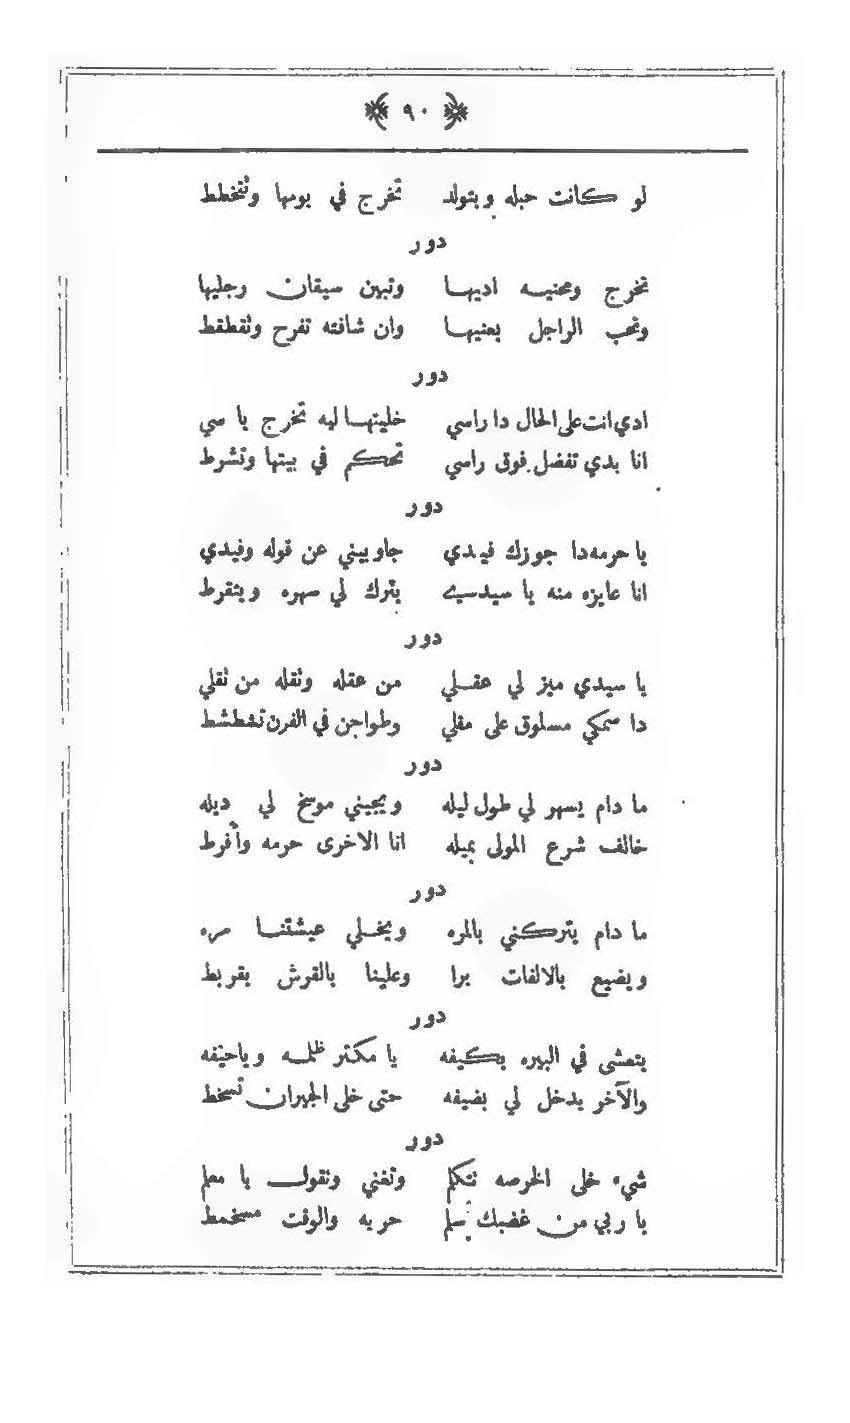 ﴿ ٩٠ ﴾
لو كانت حبله وبتولد تخرج في يومها وتتخطط
دور
تخرج ومحنيه اديها وتبهن سيقان رجليها
وتحب الراجل بعنيها وان شافته تفرح وتقطقط
دور
ادي انت على الحال دا راسي خليتها ليه تخرج يا سي
انا بدي تفضل فوق راسي تحكم في بيتها وتشرط
دور
يا حرمه دا جوزك فيدي جاوبيني عن قوله وفيدي
انا عايزه منه يا سيدسي يترك لي سهره ويتقرط
دور
يا سيدي ميز لي عقلي من عقله وتقله من تقلي
دا سمكي مسلوق على مقلي وطواجن في الفرن تشطشط
دور
ما دام يسهر لي طول ليله ويجيني موسخ لي ديله
خالف شرع المولى بميله انا الاخرى حرمه وأفرط
دور
ما دام يتركني بالمره ويخلي عيشتنا مره
ويضيع بالالفات برا وعلينا بالقرش يقربط
دور
يتمشى في البهره بكيفه يا مكتر ظلمه وياحيفه
والآخر يدخل لي بضيفه حتى خلى الجيران تسخط
دور
شيء خلى الخرصه تتكلم وتغني وتقول يا معلم
يا ربي من غضبك سلم حربه والوقت مسخمط